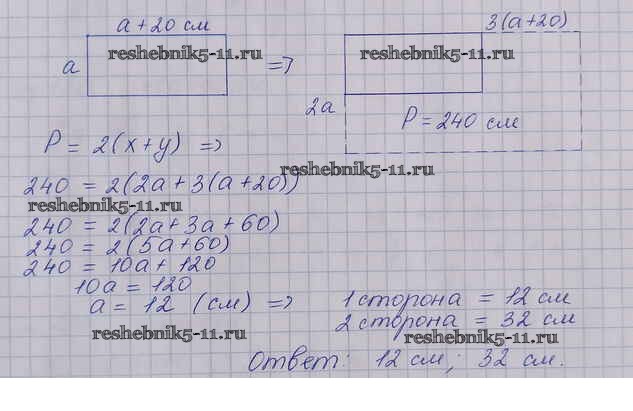 a + 20 см
3(a+20)
reshebnik5-11.ru
reshebnik5-11.ru
a
=>
2a
P = 240 см
P = 2(x+y) =>
reshebnik5-11.ru
240 = 2(2a + 3(a+20))
reshebnik5-11.ru
240 = 2(2a + 3a + 60)
240 = 2(5a+60)
240 = 10a + 120
10a = 120
a = 12 (см) =>
1 сторона = 12 см
2 сторона = 32 см
reshebnik5-11.ru
reshebnik5-11.ru
Ответ: 12 см; 32 см.